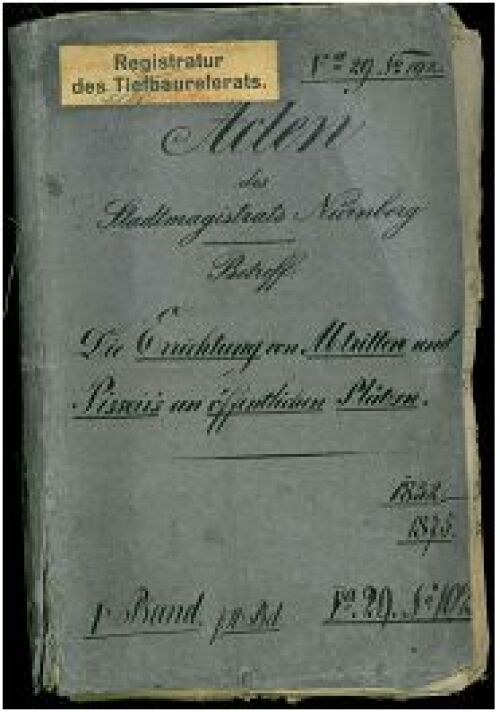 Registratur
des Tiefbaureferats.
Va 29. No 102.
Acten
des
Stadtmagistrats Nürnberg
Betreff
Die Errichtung von Abtritten und
Pissoirs an öffentlichen Plätzen.
1832
1875.
I Band.
Va. 29. No 102